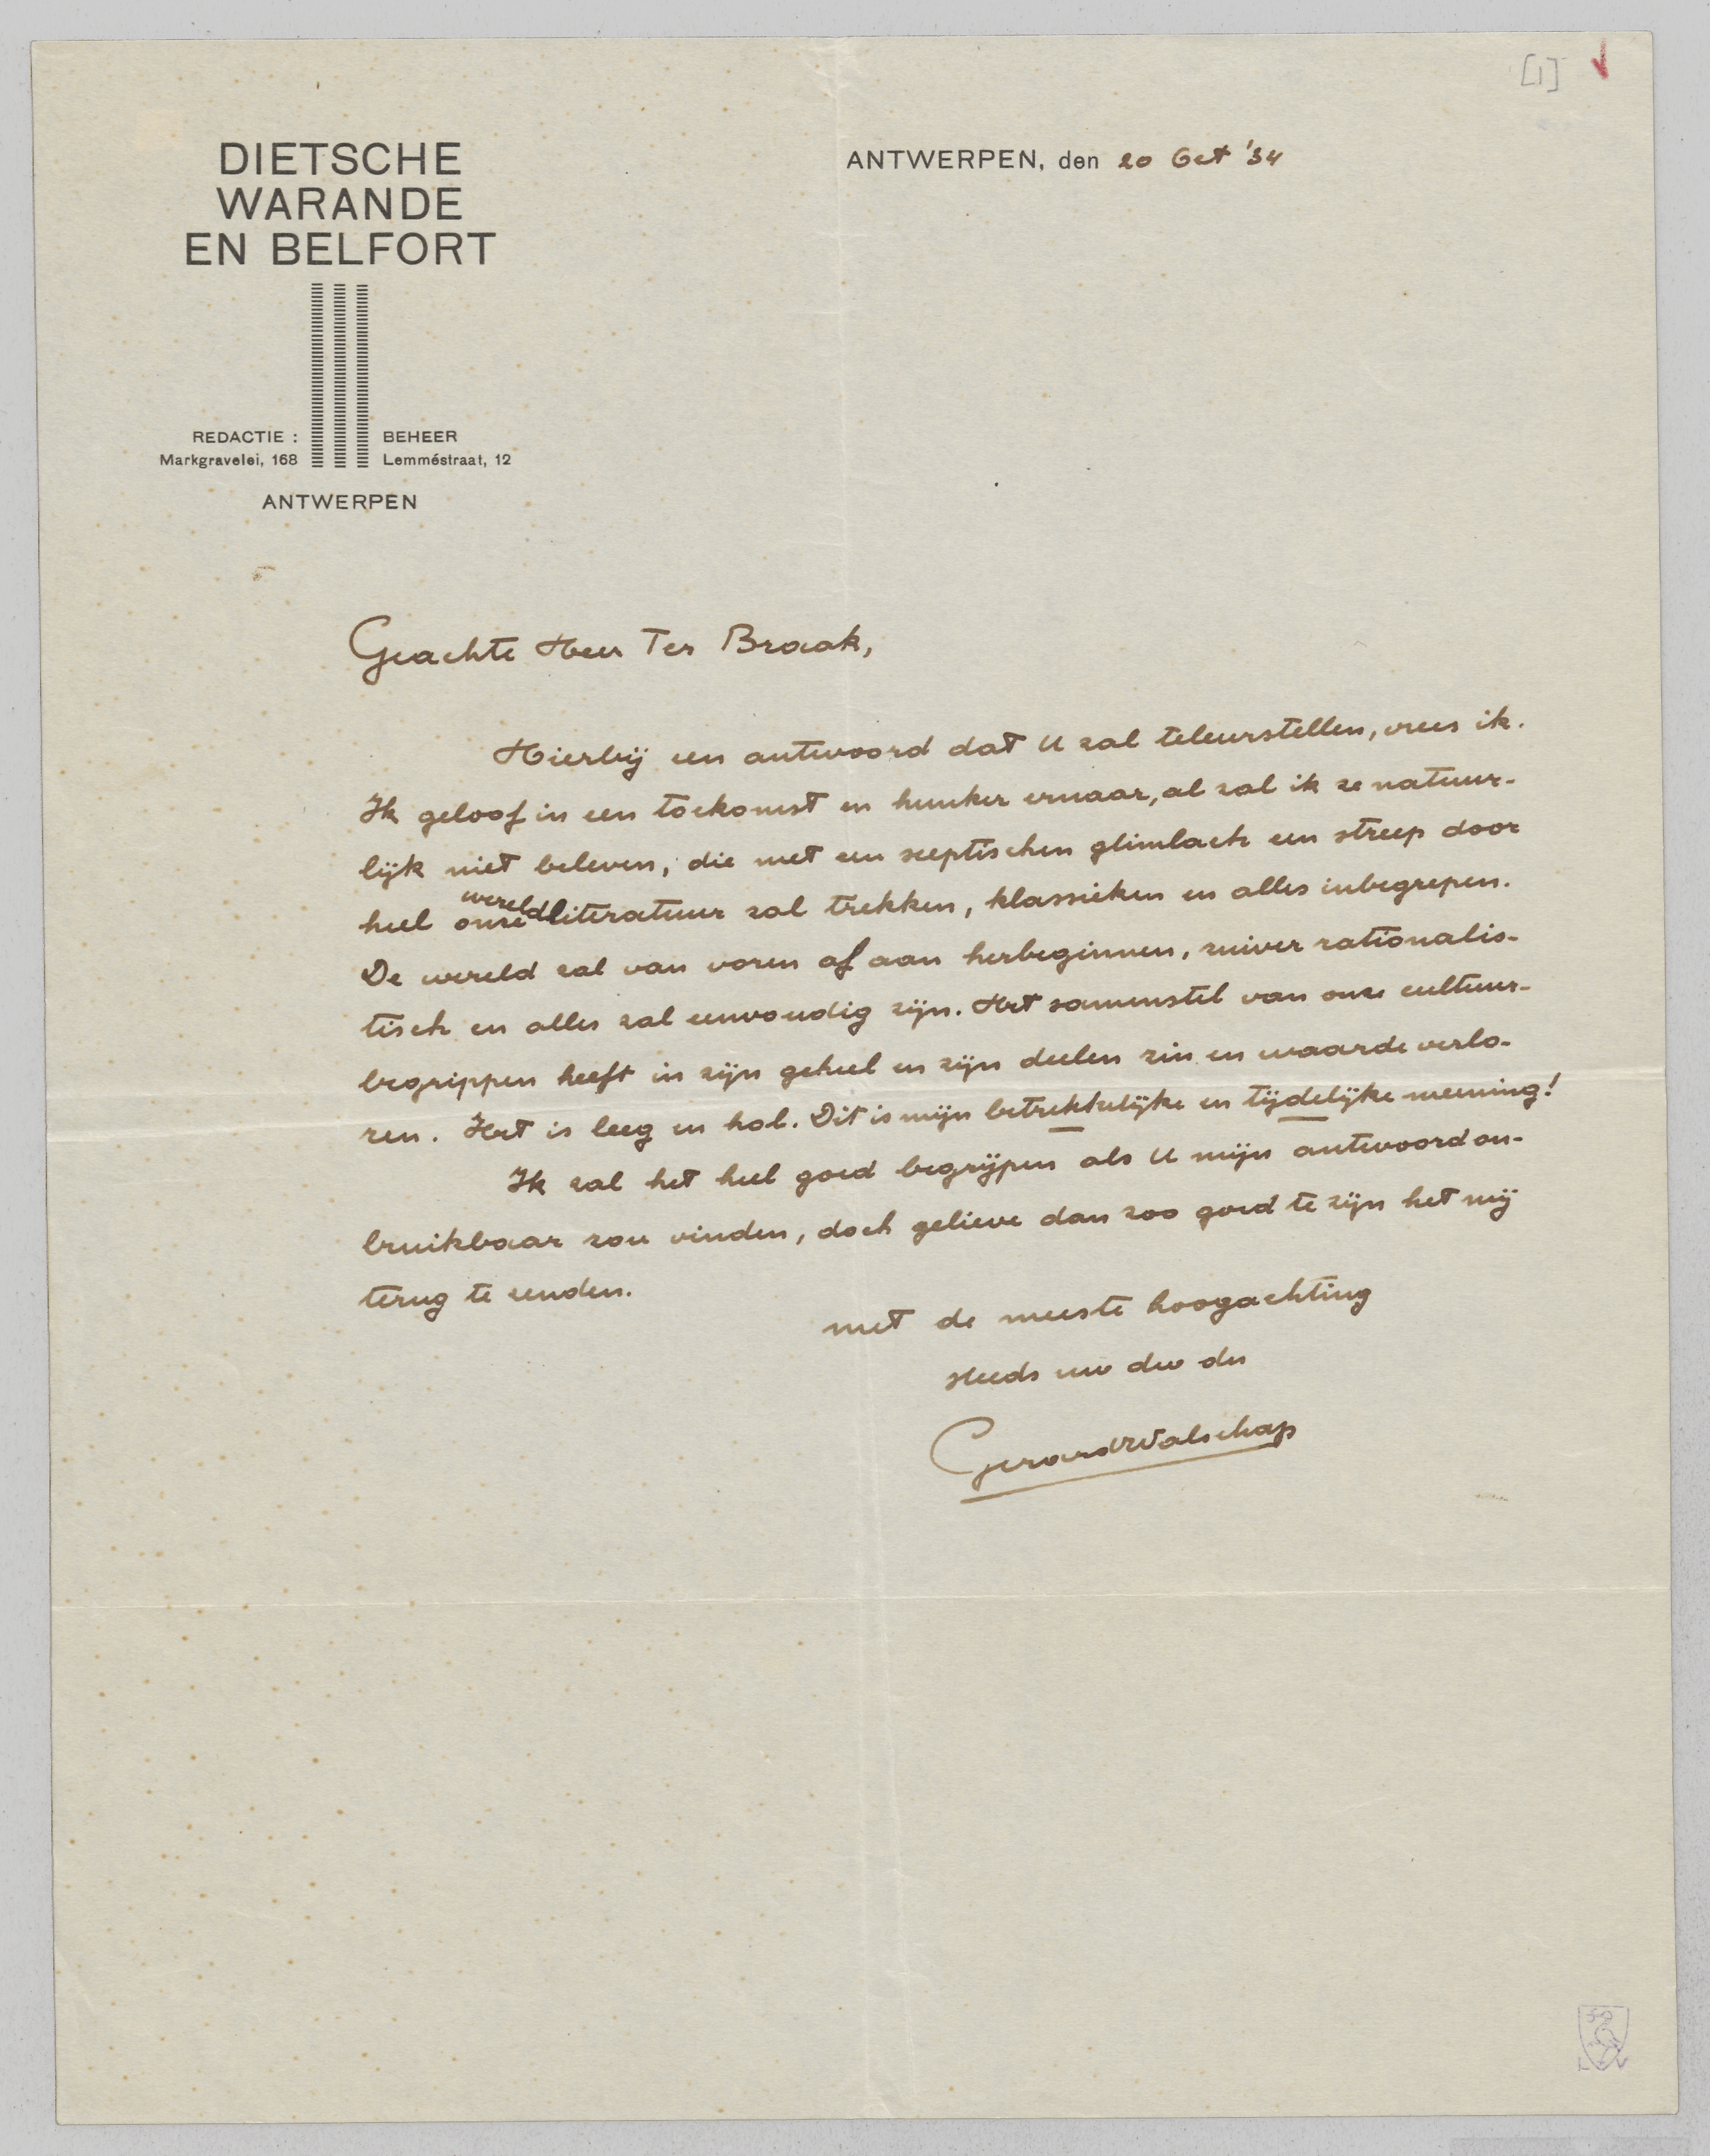 [1]
DIETSCHE
WARANDE
EN BELFORT
ANTWERPEN, den 20 Oct '34
REDACTIE :
Markgravelei, 168
BEHEER
Lemméstraat, 12
ANTWERPEN
Geachte Heer Ter Braak,
Hierbij een antwoord dat U zal teleurstellen, vrees ik.
Ik geloof in een toekomst en hunker ernaar, al zal ik ze natuur-
lijk niet beleven, die met een sceptischen glimlach een streep door
heel onze wereldliteratuur zal trekken, klassieken en alles inbegrepen.
De wereld zal van voren af aan herbeginnen, zuiver rationalis-
tisch en alles zal eenvoudig zijn. Het samenstel van onze cultuur-
begrippen heeft in zijn geheel en zijn deelen zin en waarde verlo-
ren. Het is leeg en hol. Dit is mijn betrekkelijke en tijdelijke meening!
Ik zal het heel goed begrijpen als U mijn antwoord on-
bruikbaar zou vinden, doch gelieve dan zoo goed te zijn het mij
terug te zenden.
met de meeste hoogachting
steeds uw dw dn
Gerard Walschap